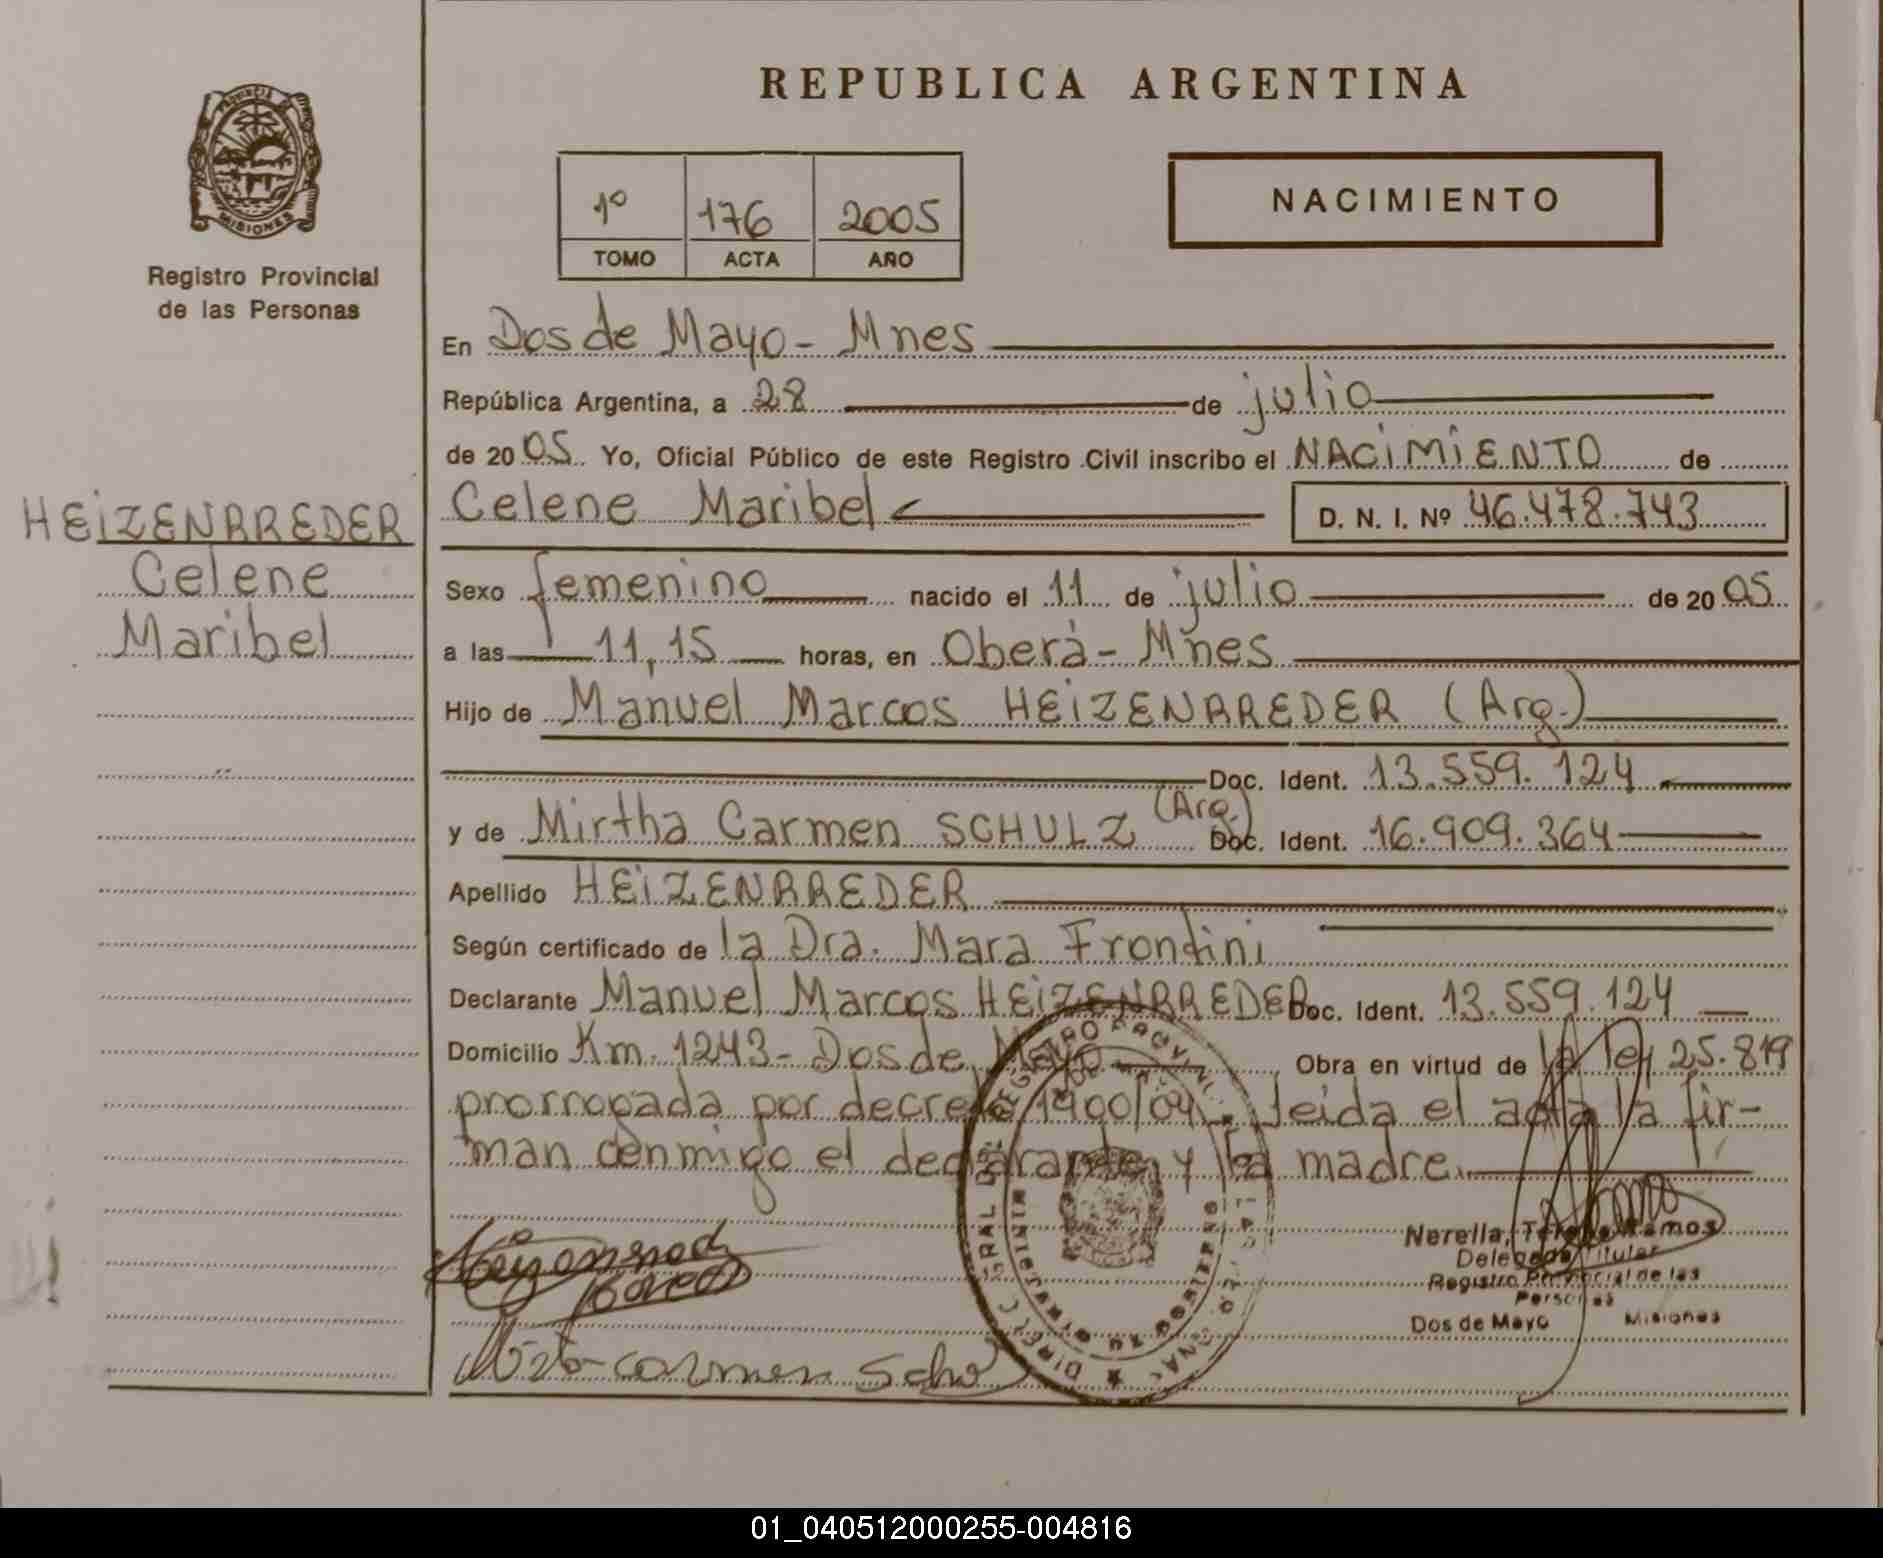 REPUBLICA ARGENTINA
PROVINCIA DE
MISIONES
Registro Provincial
de las Personas
1º 176 2005
TOMO ACTA AÑO
NACIMIENTO
En Dos de Mayo - Mnes
República Argentina, a 28 de julio
de 2005 Yo, Oficial Público de este Registro Civil inscribo el NACIMIENTO de
Celene Maribel D. N. I. Nº 46.478.743
HEIZENRREDER
Celene
Maribel
Sexo femenino nacido el 11 de julio de 2005
a las 11,15 horas, en Oberá - Mnes
Hijo de Manuel Marcos HEIZENRREDER (Arg.)
Doc. Ident. 13.559.124
y de Mirtha Carmen SCHULZ (Arg.) Doc. Ident. 16.909.364
Apellido HEIZENRREDER
Según certificado de la Dra. Mara Frontini
Declarante Manuel Marcos HEIZENRREDER Doc. Ident. 13.559.124
Domicilio Km. 1243 - Dos de Mayo Obra en virtud de la ley 25.819
prorrogada por decreto 1900/04 - Leida el acta la fir-
man conmigo el declarante y la madre.
Nerella, Ramos
Delegada Titular
Registro Provincial de las
Personas
Dos de Mayo Misiones
01_040512000255-004816